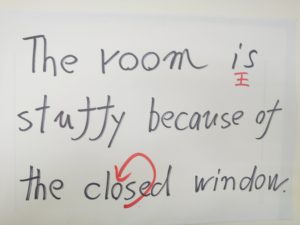 The room is
王
stuffy because of
the closed window.